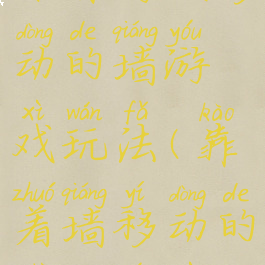 dòng de qiáng yóu
动的墙游
xì wán fǎ kào
戏玩法(靠
zhuó qiáng yí dòng de
着墙移动的